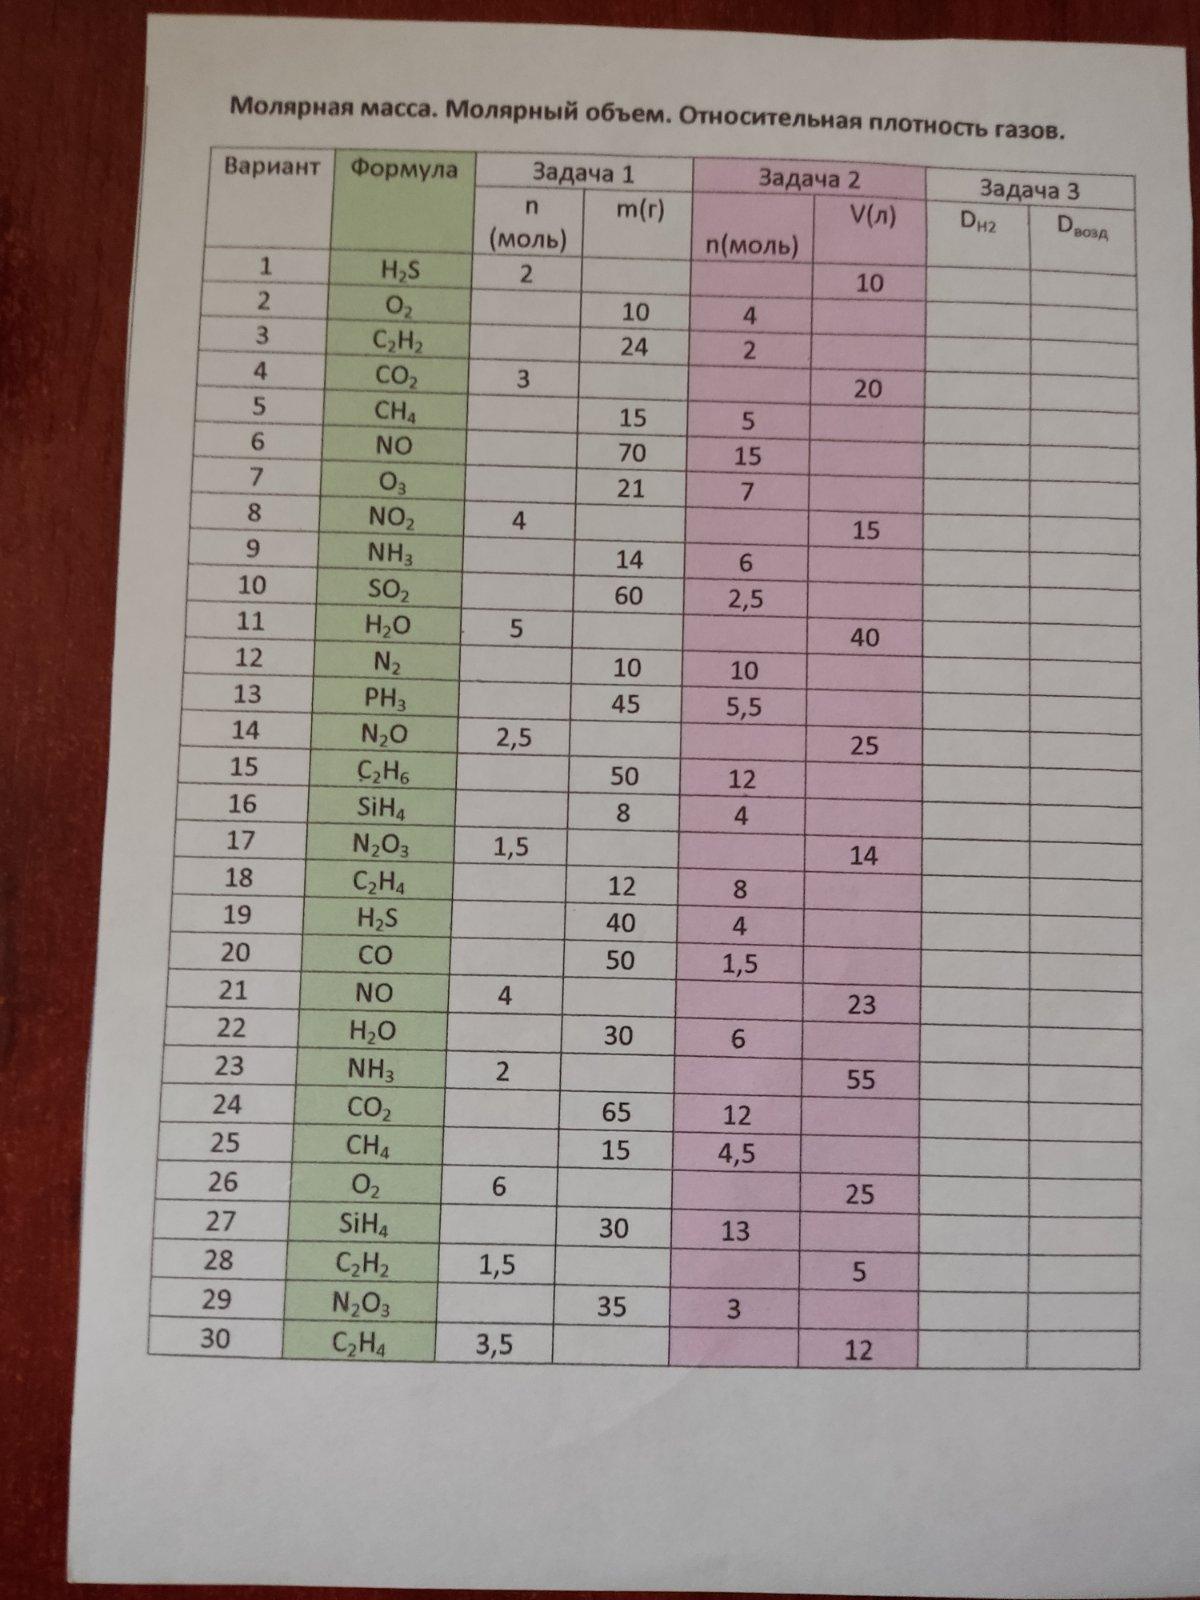 Молярная масса. Молярный объем. Относительная плотность газов.
Вариант Формула Задача 1 Задача 2 Задача 3
n (моль) m(г) n(моль) V(л) DH2 Dвозд
1 H₂S 2 10
2 O₂ 10 4
3 C₂H₂ 24 2
4 CO₂ 3 20
5 CH₄ 15 5
6 NO 70 15
7 O₃ 21 7
8 NO₂ 4 15
9 NH₃ 14 6
10 SO₂ 60 2,5
11 H₂O 5 40
12 N₂ 10 10
13 PH₃ 45 5,5
14 N₂O 2,5 25
15 C₂H₆ 50 12
16 SiH₄ 8 4
17 N₂O₃ 1,5 14
18 C₂H₄ 12 8
19 H₂S 40 4
20 CO 50 1,5
21 NO 4 23
22 H₂O 30 6
23 NH₃ 2 55
24 CO₂ 65 12
25 CH₄ 15 4,5
26 O₂ 6 25
27 SiH₄ 30 13
28 C₂H₂ 1,5 5
29 N₂O₃ 35 3
30 C₂H₄ 3,5 12